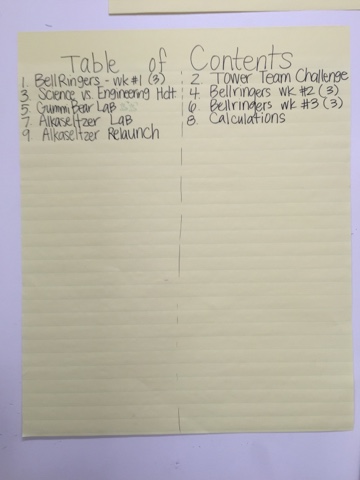 Table of Contents
1. BellRingers - wk #1 (3)
2. Tower Team Challenge
3. Science vs. Engineering Hdt
4. Bellringers wk #2 (3)
5. Gummi Bear Lab
6. Bellringers wk #3 (3)
7. Alkaseltzer Lab
8. Calculations
9. Alkaseltzer Relaunch